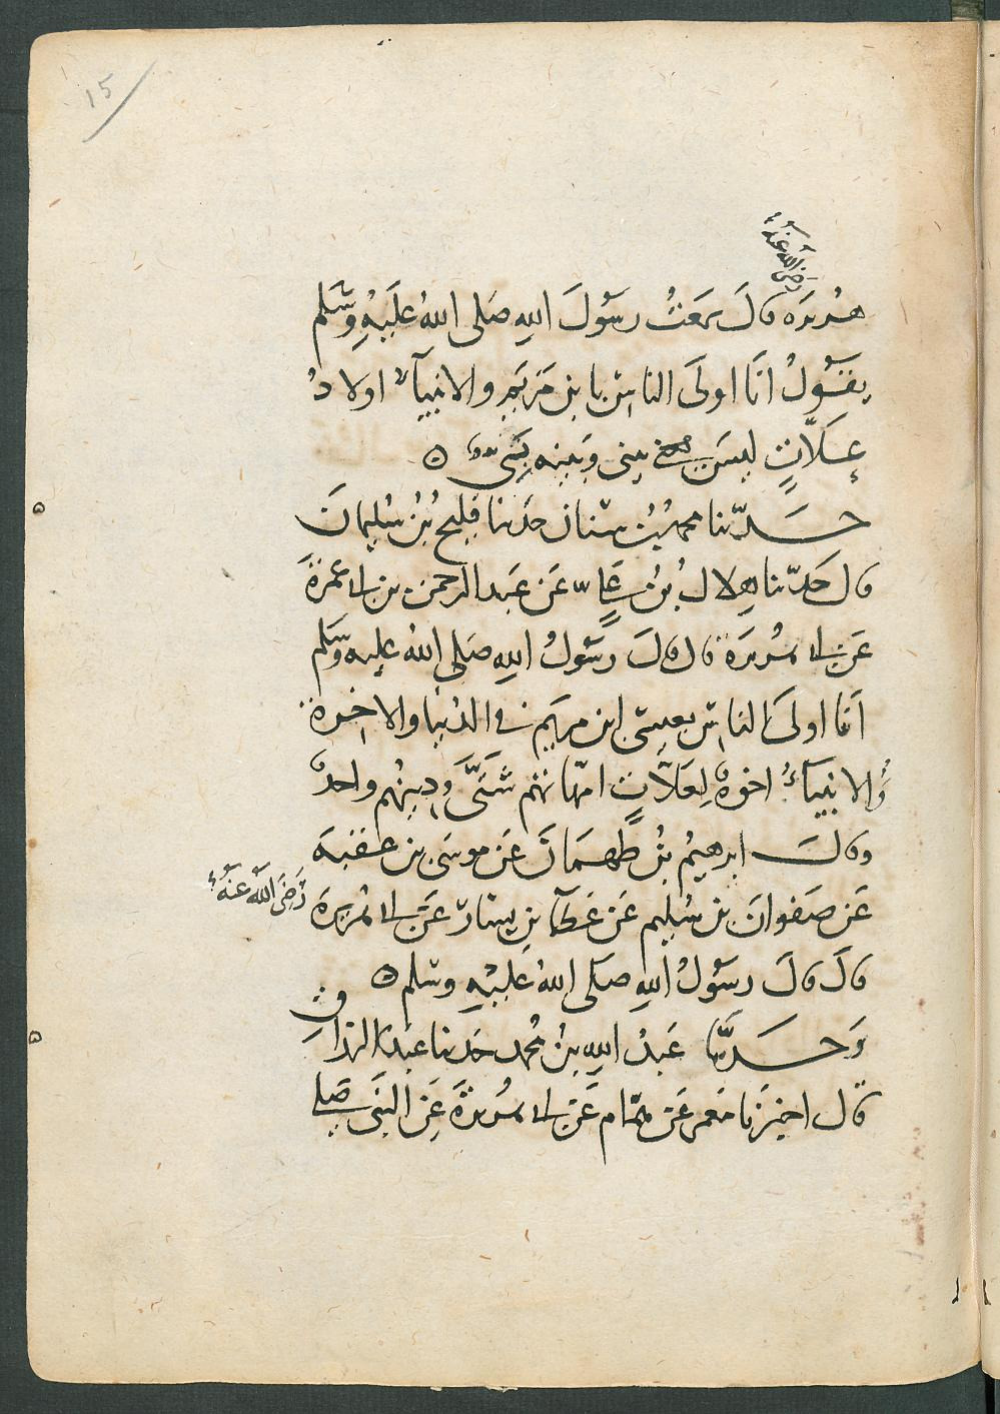 15
رضى الله عنه
هريرة قال سمعت رسول الله صلى الله عليه وسلم
يقول انا اولى الناس بابن مريم والانبياء اولاد
علات ليس بينى وبينه نبى
حدثنا محمد بن سنان حدثنا فليح بن سليمان
قال حدثنا هلال بن على عن عبد الرحمن بن ابى عمرة
عن ابى هريرة قال قال رسول الله صلى الله عليه وسلم
انا اولى الناس بعيسى ابن مريم فى الدنيا والاخرة
والانبياء اخوة لعلات امهاتهم شتى ودينهم واحد
وقال ابرهيم بن طهمان عن موسى بن عقبة
عن صفوان بن سليم عن عطاء بن يسار عن ابى هريرة رضى الله عنه
قال قال رسول الله صلى الله عليه وسلم
وحدثنا عبد الله بن محمد حدثنا عبد الرزاق
قال اخبرنا معمر عن همام عن ابى هريرة عن النبى صلى